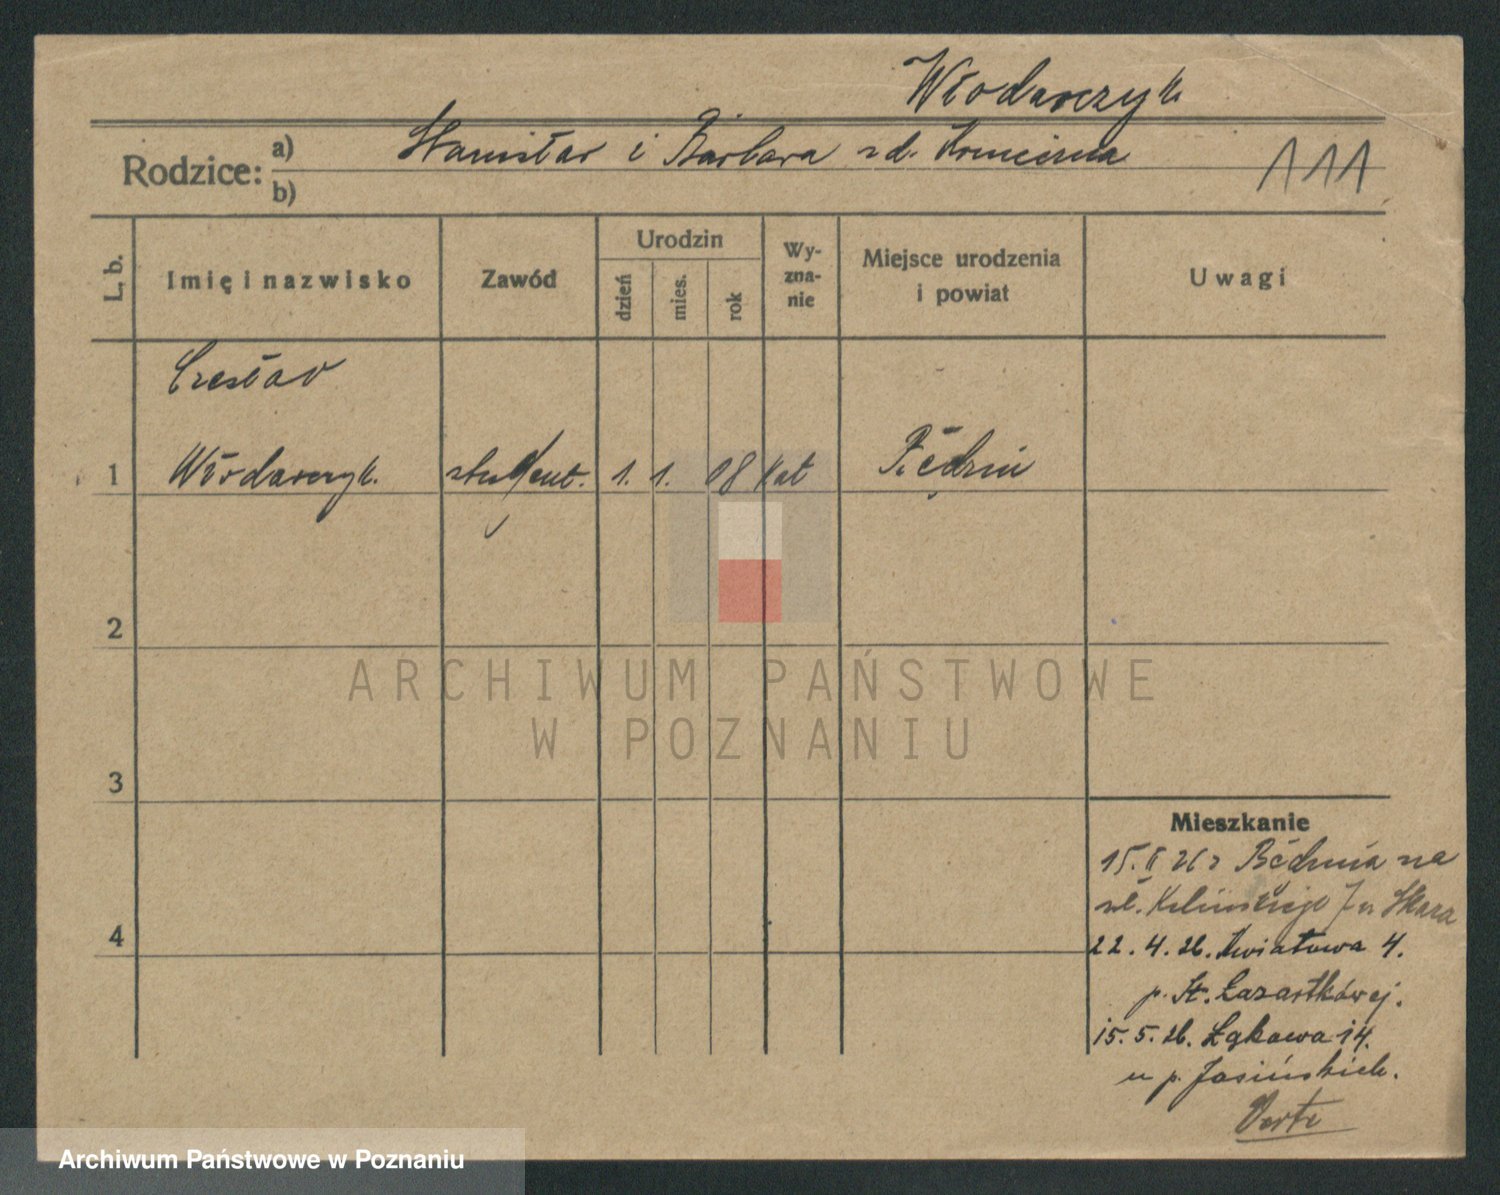 Włodarczyk
Rodzice:
a) Stanisław i Barbara zd.
b)
111
L, b.
Imię i nazwisko
Zawód
Urodzin
dzień
mies.
rok
Wy-
zna-
nie
Miejsce urodzenia
i powiat
Uwagi
Czesław
1 Włodarczyk. student. 1. 1. 08 kat
2
3
4
ARCHIWUM PAŃSTWOWE
W POZNANIU
Mieszkanie
15. II 26 z na
ul.
22. 4. 26. Kwiatowa 4.
p. St.
15. 5. 26. Łąkowa 14.
u p. Jasińskich.
Verte
Archiwum Państwowe w Poznaniu